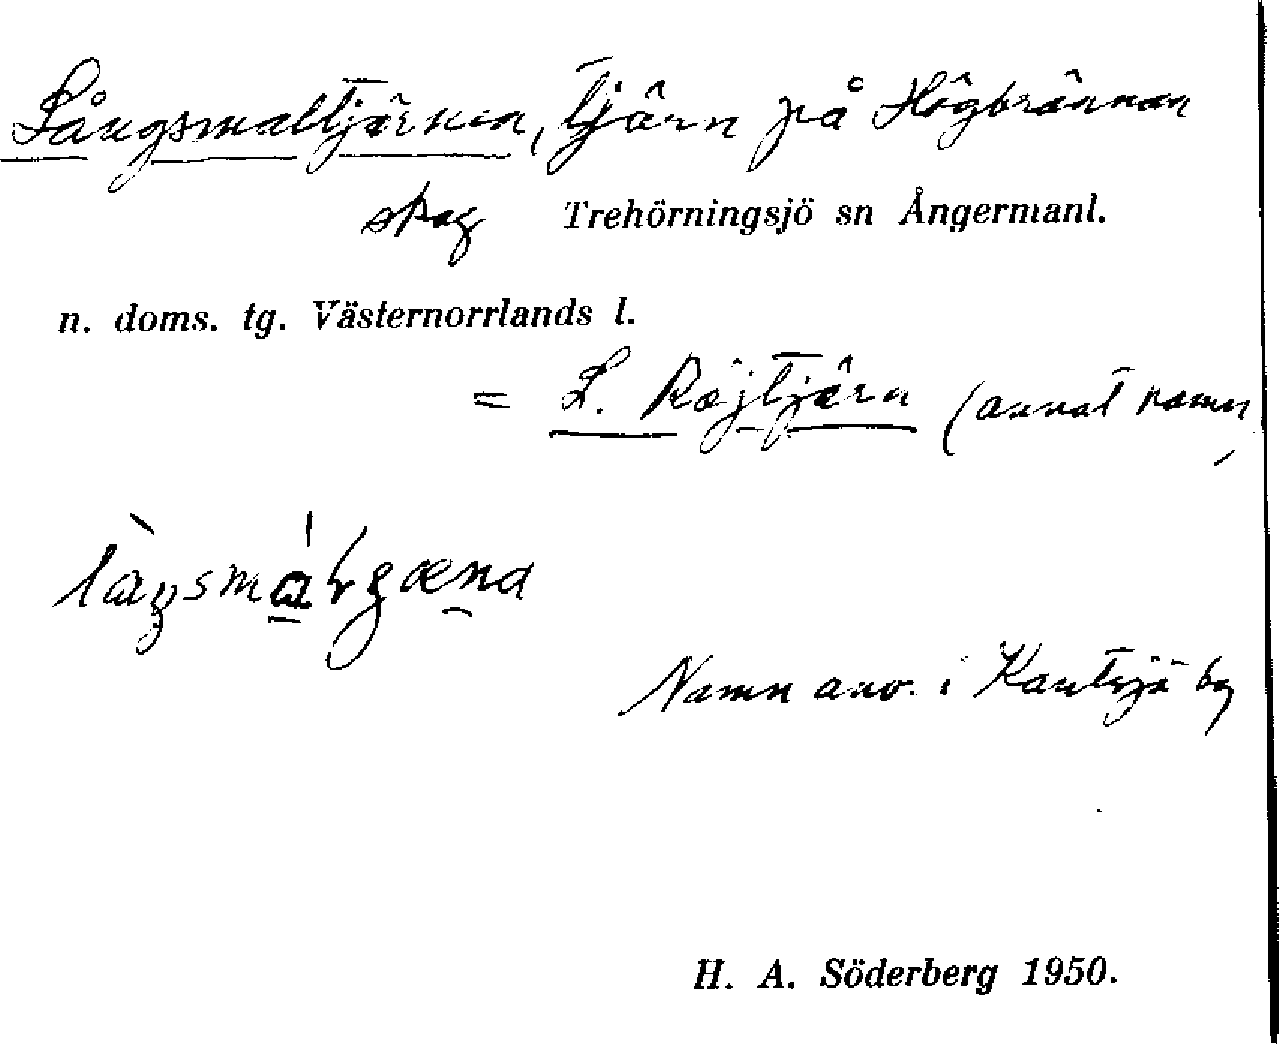 Långsmaltjärnen, tjärn på Högbrännan
skog Trehörningsjö sn Ångermanl.
n. doms. tg. Västernorrlands l.
= L. Röjtjärn (annat namn
Namn anv. i Kantsjö by
H. A. Söderberg 1950.